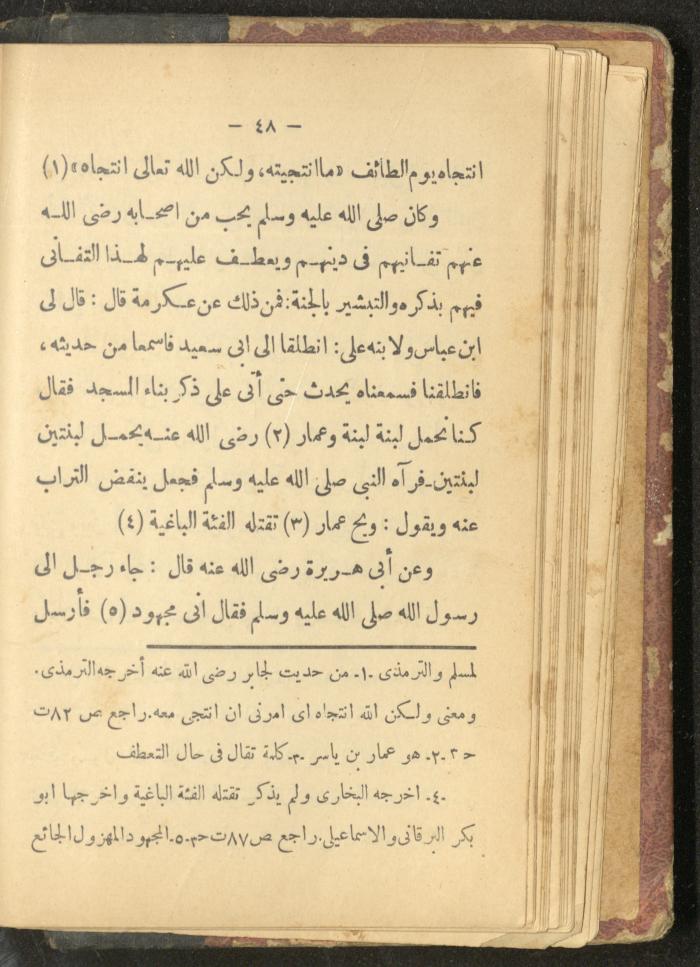 — ٤٨ —
انتجاه يوم الطائف «ما انتجيته، ولكن الله تعالى انتجاه» (١)
وكان صلى الله عليه وسلم يحب من اصحابه رضى الله
عنهم تفانيهم فى دينهم ويعطف عليهم لهذا التفانى
فيهم بذكره والتبشير بالجنة: فمن ذلك عن عكرمة قال : قال لى
ابن عباس ولابنه على : انطلقا الى ابى سعيد فاسمعا من حديثه ،
فانطلقنا فسمعناه يحدث حتى أتى على ذكر بناء المسجد فقال
كنا نحمل لبنة لبنة وعمار (٢) رضى الله عنه يحمل لبنتين
لبنتين-فرآه النبى صلى الله عليه وسلم فجعل ينفض التراب
عنه ويقول : ويح عمار (٣) تقتله الفئة الباغية (٤)
وعن أبى هريرة رضى الله عنه قال : جاء رجل الى
رسول الله صلى الله عليه وسلم فقال انى مجهود (٥) فأرسل
لمسلم والترمذى -١- من حديت لجابر رضى الله عنه أخرجه الترمذى.
ومعنى ولكن الله انتجاه اى امرنى ان انتجى معه.راجع ص ٨٢ت
ح٣ -٢- هو عمار بن ياسر -٣- كلمة تقال فى حال التعطف
-٤- اخرجه البخارى ولم يذكر تقتله الفئة الباغية واخرجها ابو
بكر البرقانى والاسماعيلى.راجع ص٨٧ت ح٣ -٥- المجهود المهزول الجائع